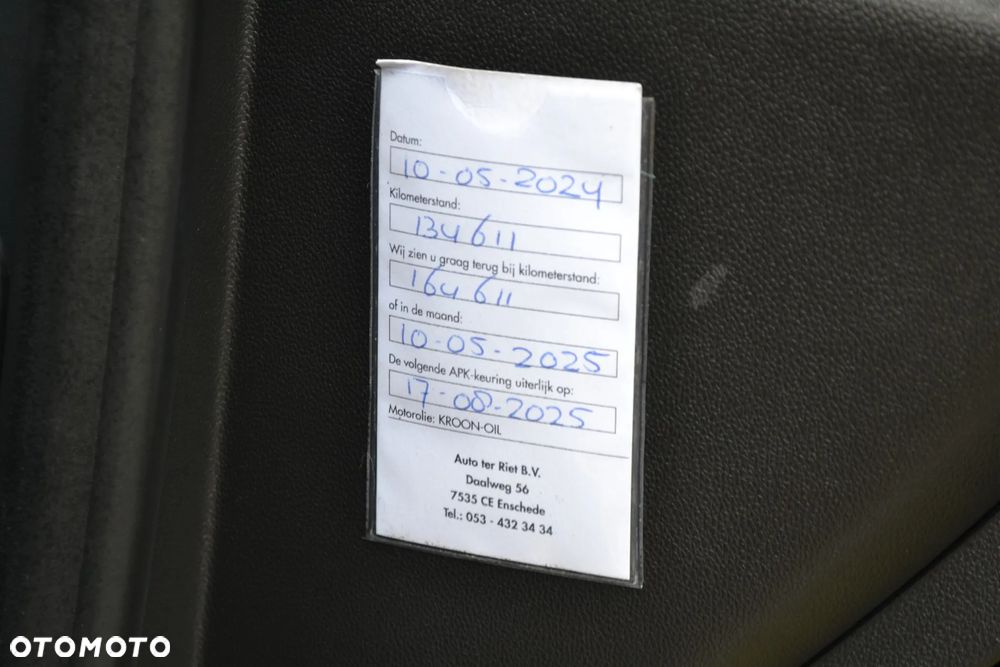 Datum:
10-05-2024
Kilometerstand:
134611
Wij zien u graag terug bij kilometerstand:
164611
of in de maand:
10-05-2025
De volgende APK-keuring uiterlijk op:
17-08-2025
Motorolie: KROON-OIL
Auto ter Riet B.V.
Daalweg 56
7535 CE Enschede
Tel.: 053 - 432 34 34
OTOMOTO